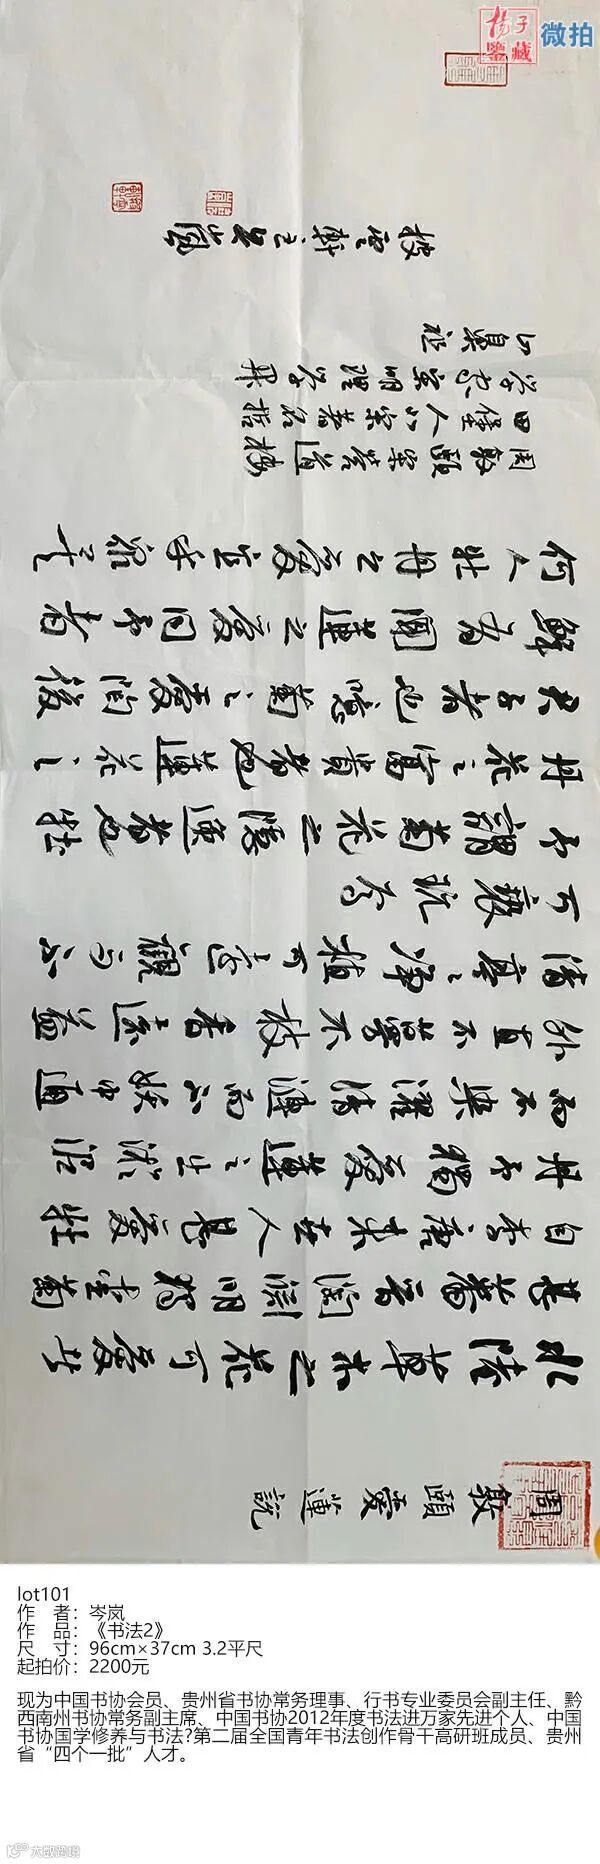 揚子鑒藏 微拍
周敦頤愛蓮說
水陸草木之花可愛者
甚蕃晉陶淵明獨愛菊
自李唐來世人甚愛牡
丹予獨愛蓮之出淤泥
而不染濯清漣而不妖中通
外直不蔓不枝香遠益
清亭亭淨植可遠觀而不
可褻玩焉
予謂菊花之隱逸者也牡
丹花之富貴者也蓮花之
君子者也噫菊之愛陶後
鮮有聞蓮之愛同予者
何人牡丹之愛宜乎眾矣
周敦頤宋營道樓
田堡人北宋著名哲
學家宋明理學開
山鼻祖
披雲軒主岑嵐
lot101
作 者：岑岚
作 品：《书法2》
尺 寸：96cm×37cm 3.2平尺
起拍价：2200元
现为中国书协会员、贵州省书协常务理事、行书专业委员会副主任、黔
西南州书协常务副主席、中国书协2012年度书法进万家先进个人、中国
书协国学修养与书法?第二届全国青年书法创作骨干高研班成员、贵州
省“四个一批”人才。